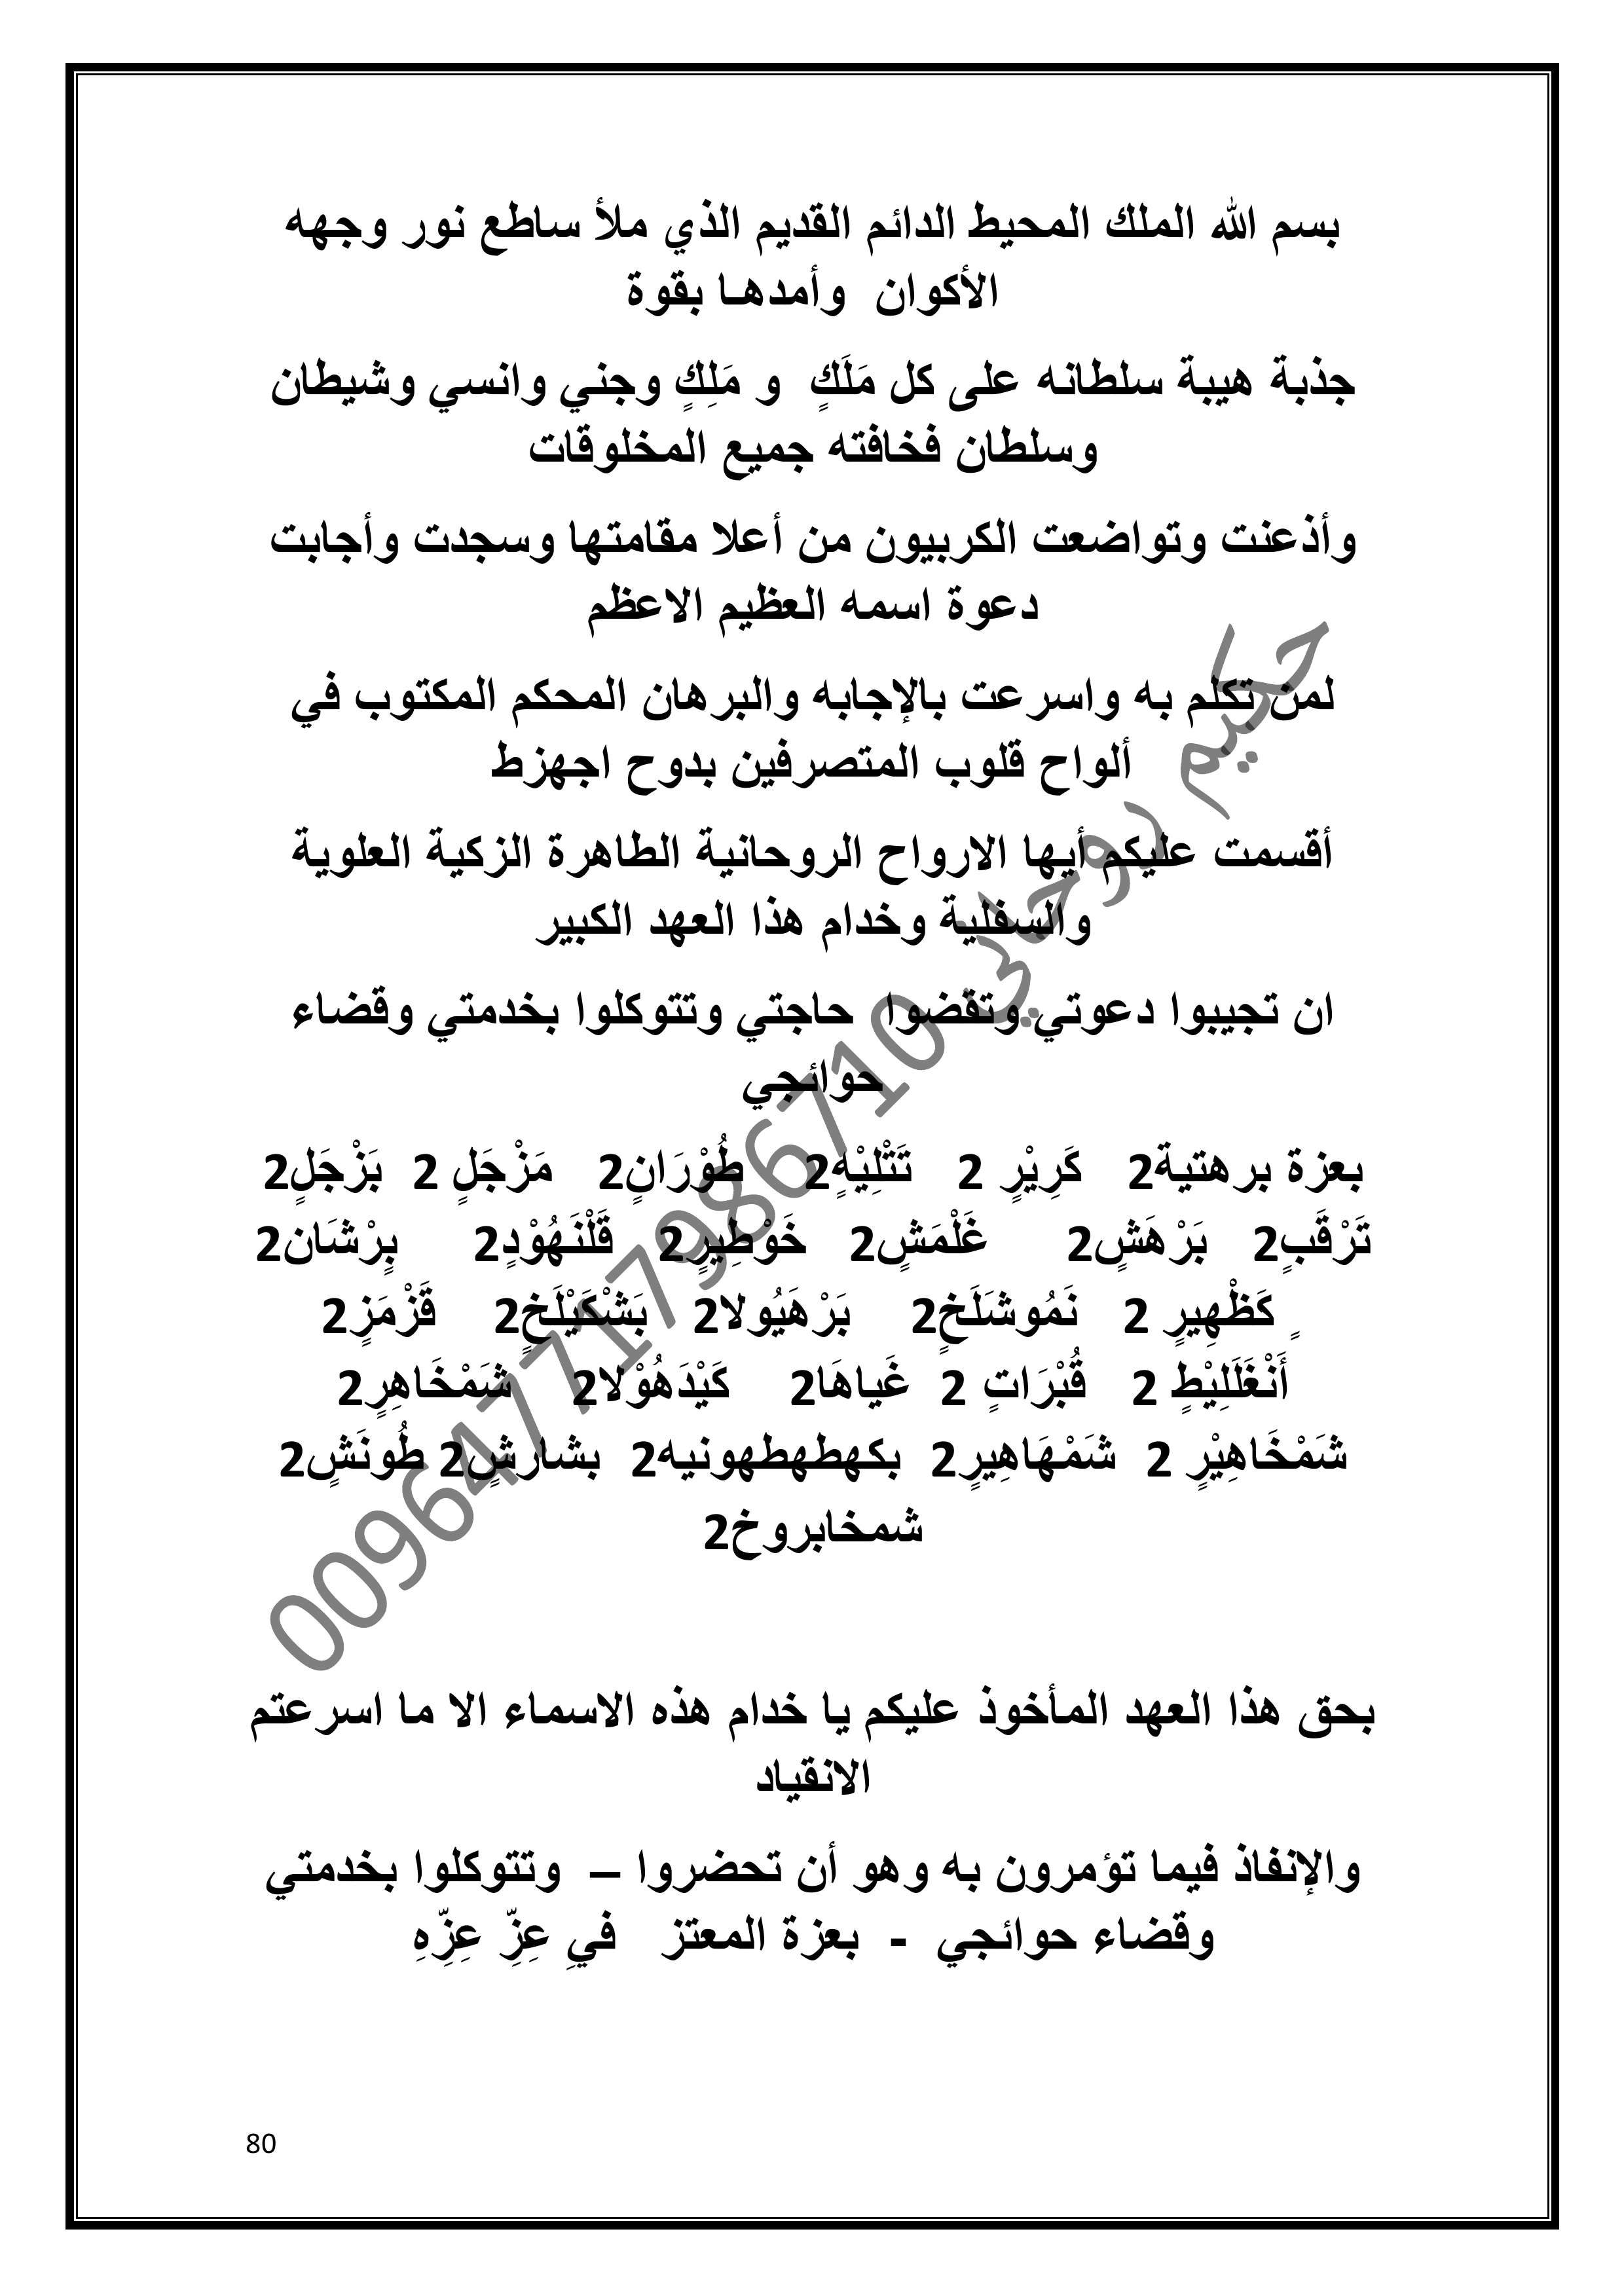 بسم الله الملك المحيط الدائم القديم الذي ملأ ساطع نور وجهه
الأكوان وأمدهـا بقوة
جذبة هيبة سلطانه على كل مَلَكٍ و مَلِكٍ وجني وانسي وشيطان
وسلطان فخافته جميع المخلوقات
وأذعنت وتواضعت الكربيون من أعلا مقامتها وسجدت وأجابت
دعوة اسمه العظيم الاعظم
لمن تكلم به واسرعت بالإجابه والبرهان المحكم المكتوب في
ألواح قلوب المتصرفين بدوح اجهزط
أقسمت عليكم أيها الارواح الروحانية الطاهرة الزكية العلوية
والسفلية وخدام هذا العهد الكبير
ان تجيبوا دعوتي وتقضوا حاجتي وتتوكلوا بخدمتي وقضاء
حوائجي
بعزة برهتية2 كَرِيْرٍ 2 تَتْلِيْهٍ2 طُوْرَانٍ2 مَزْجَلٍ 2 بَزْجَلٍ2
تَرْقَبٍ2 بَرْهَشٍ2 غَلْمَشٍ2 خَوْطِيرٍ2 قَلْنَهُوْدٍ2 بِرْشَان2
ٍ كَظْهِيرٍ 2 نَمُوشَلَخٍ2 بَرْهَيُولا2 بَشْكَيْلَخٍ2 قَزْمَزٍ2
أَنْغَلَلِيْطٍ 2 قُبْرَاتٍ 2 غَياهَا2 كَيْدَهُوْلا2 شَمْخَاهِرٍ2
شَمْخَاهِيْرٍ 2 شَمْهَاهِيرٍ2 بكهطهطهونيه2 بشارشٍ2 طُونَشٍ2
شمخابروخ2
بحق هذا العهد المأخوذ عليكم يا خدام هذه الاسماء الا ما اسرعتم
الانقياد
والإنفاذ فيما تؤمرون به وهو أن تحضروا – وتتوكلوا بخدمتي
وقضاء حوائجي - بعزة المعتز فيِ عِزِّ عِزِّهِ
حكيم روحاني 009647717986710
80